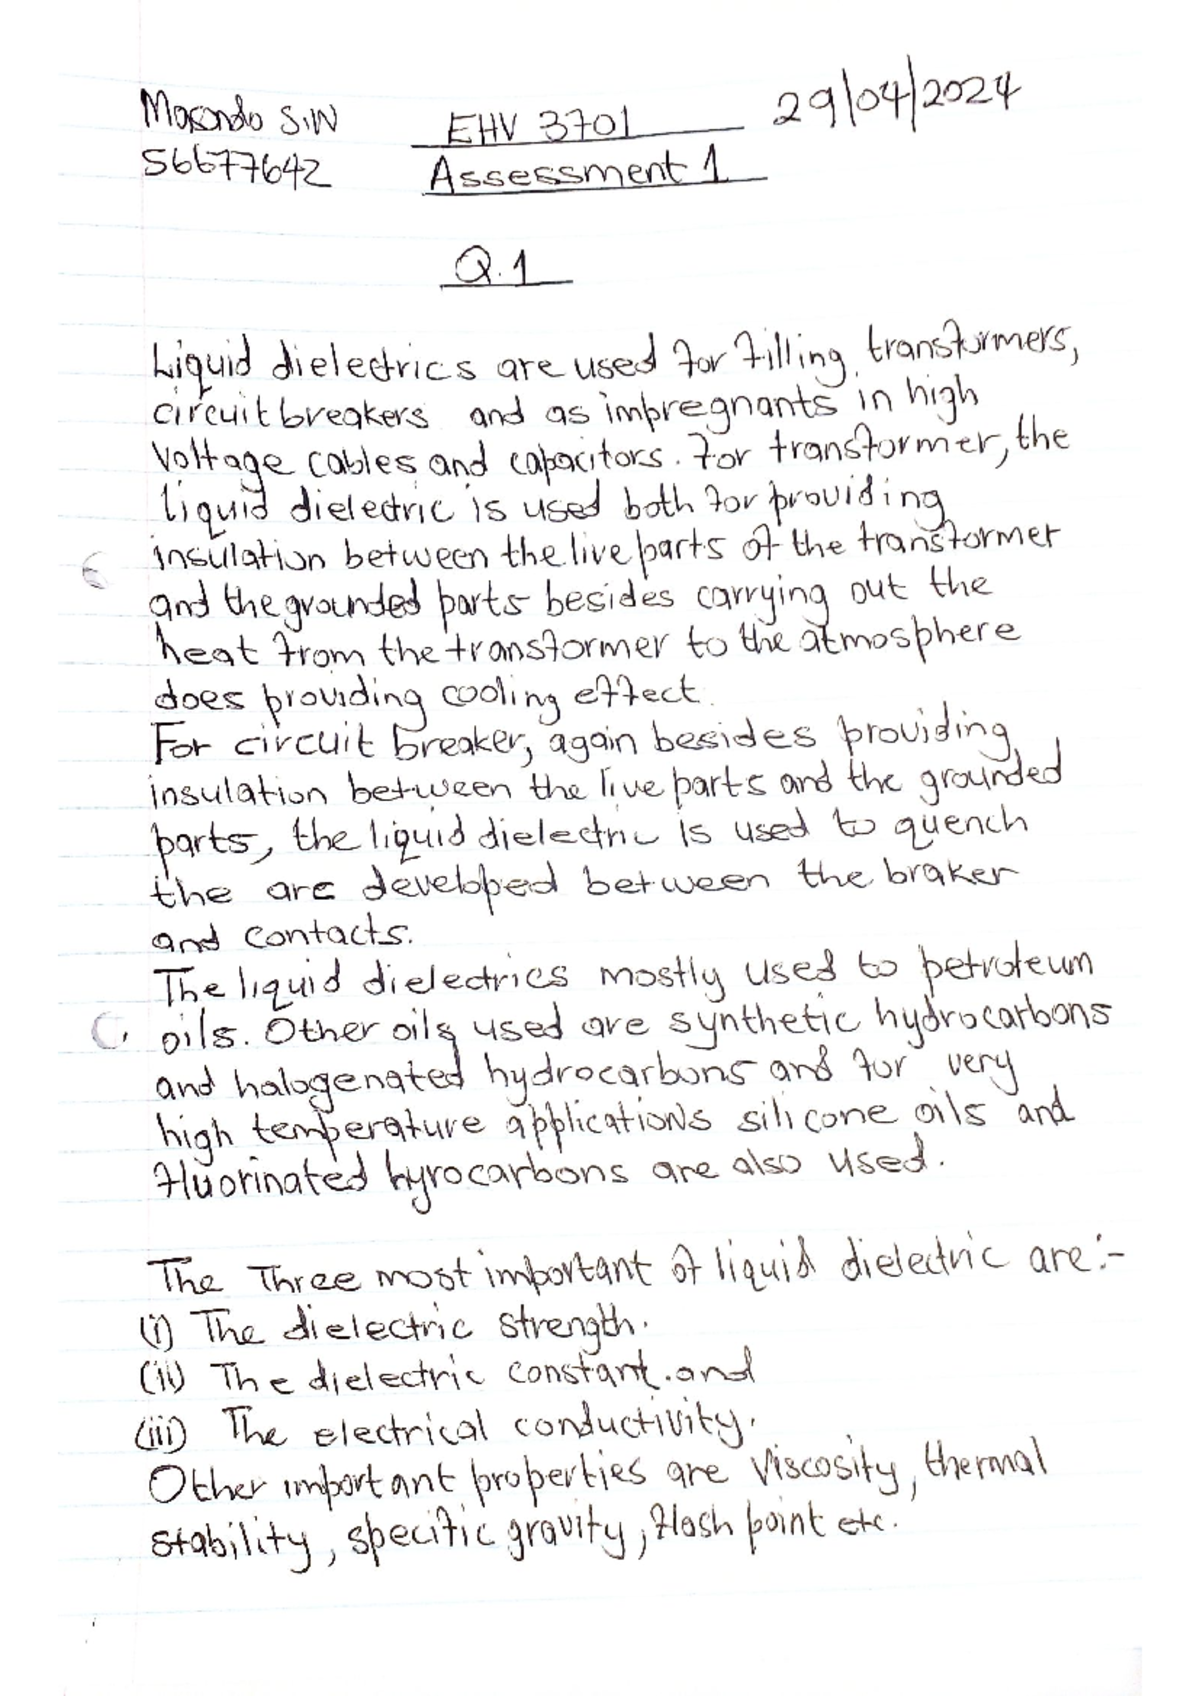 Macondo S.W
56677642
EHV 3701
Assessment 1
29/04/2024
Q.1
Liquid dielectrics are used for filling transformers,
circuit breakers and as impregnants in high
voltage cables and capacitors. For transformer, the
liquid dielectric is used both for providing
insulation between the live parts of the transformer
and the grounded parts besides carrying out the
heat from the transformer to the atmosphere
does providing cooling effect.
For circuit breaker, again besides providing
insulation between the live parts and the grounded
parts, the liquid dielectric is used to quench
the arc developed between the braker
and contacts.
The liquid dielectrics mostly used to petroleum
oils. Other oils used are synthetic hydrocarbons
and halogenated hydrocarbons and for very
high temperature applications silicone oils and
fluorinated hyrocarbons are also used.
The Three most important of liquid dielectric are:-
(i) The dielectric strength.
(ii) The dielectric constant. and
(iii) The electrical conductivity.
Other important properties are viscosity, thermal
stability, specific gravity, flash point etc.